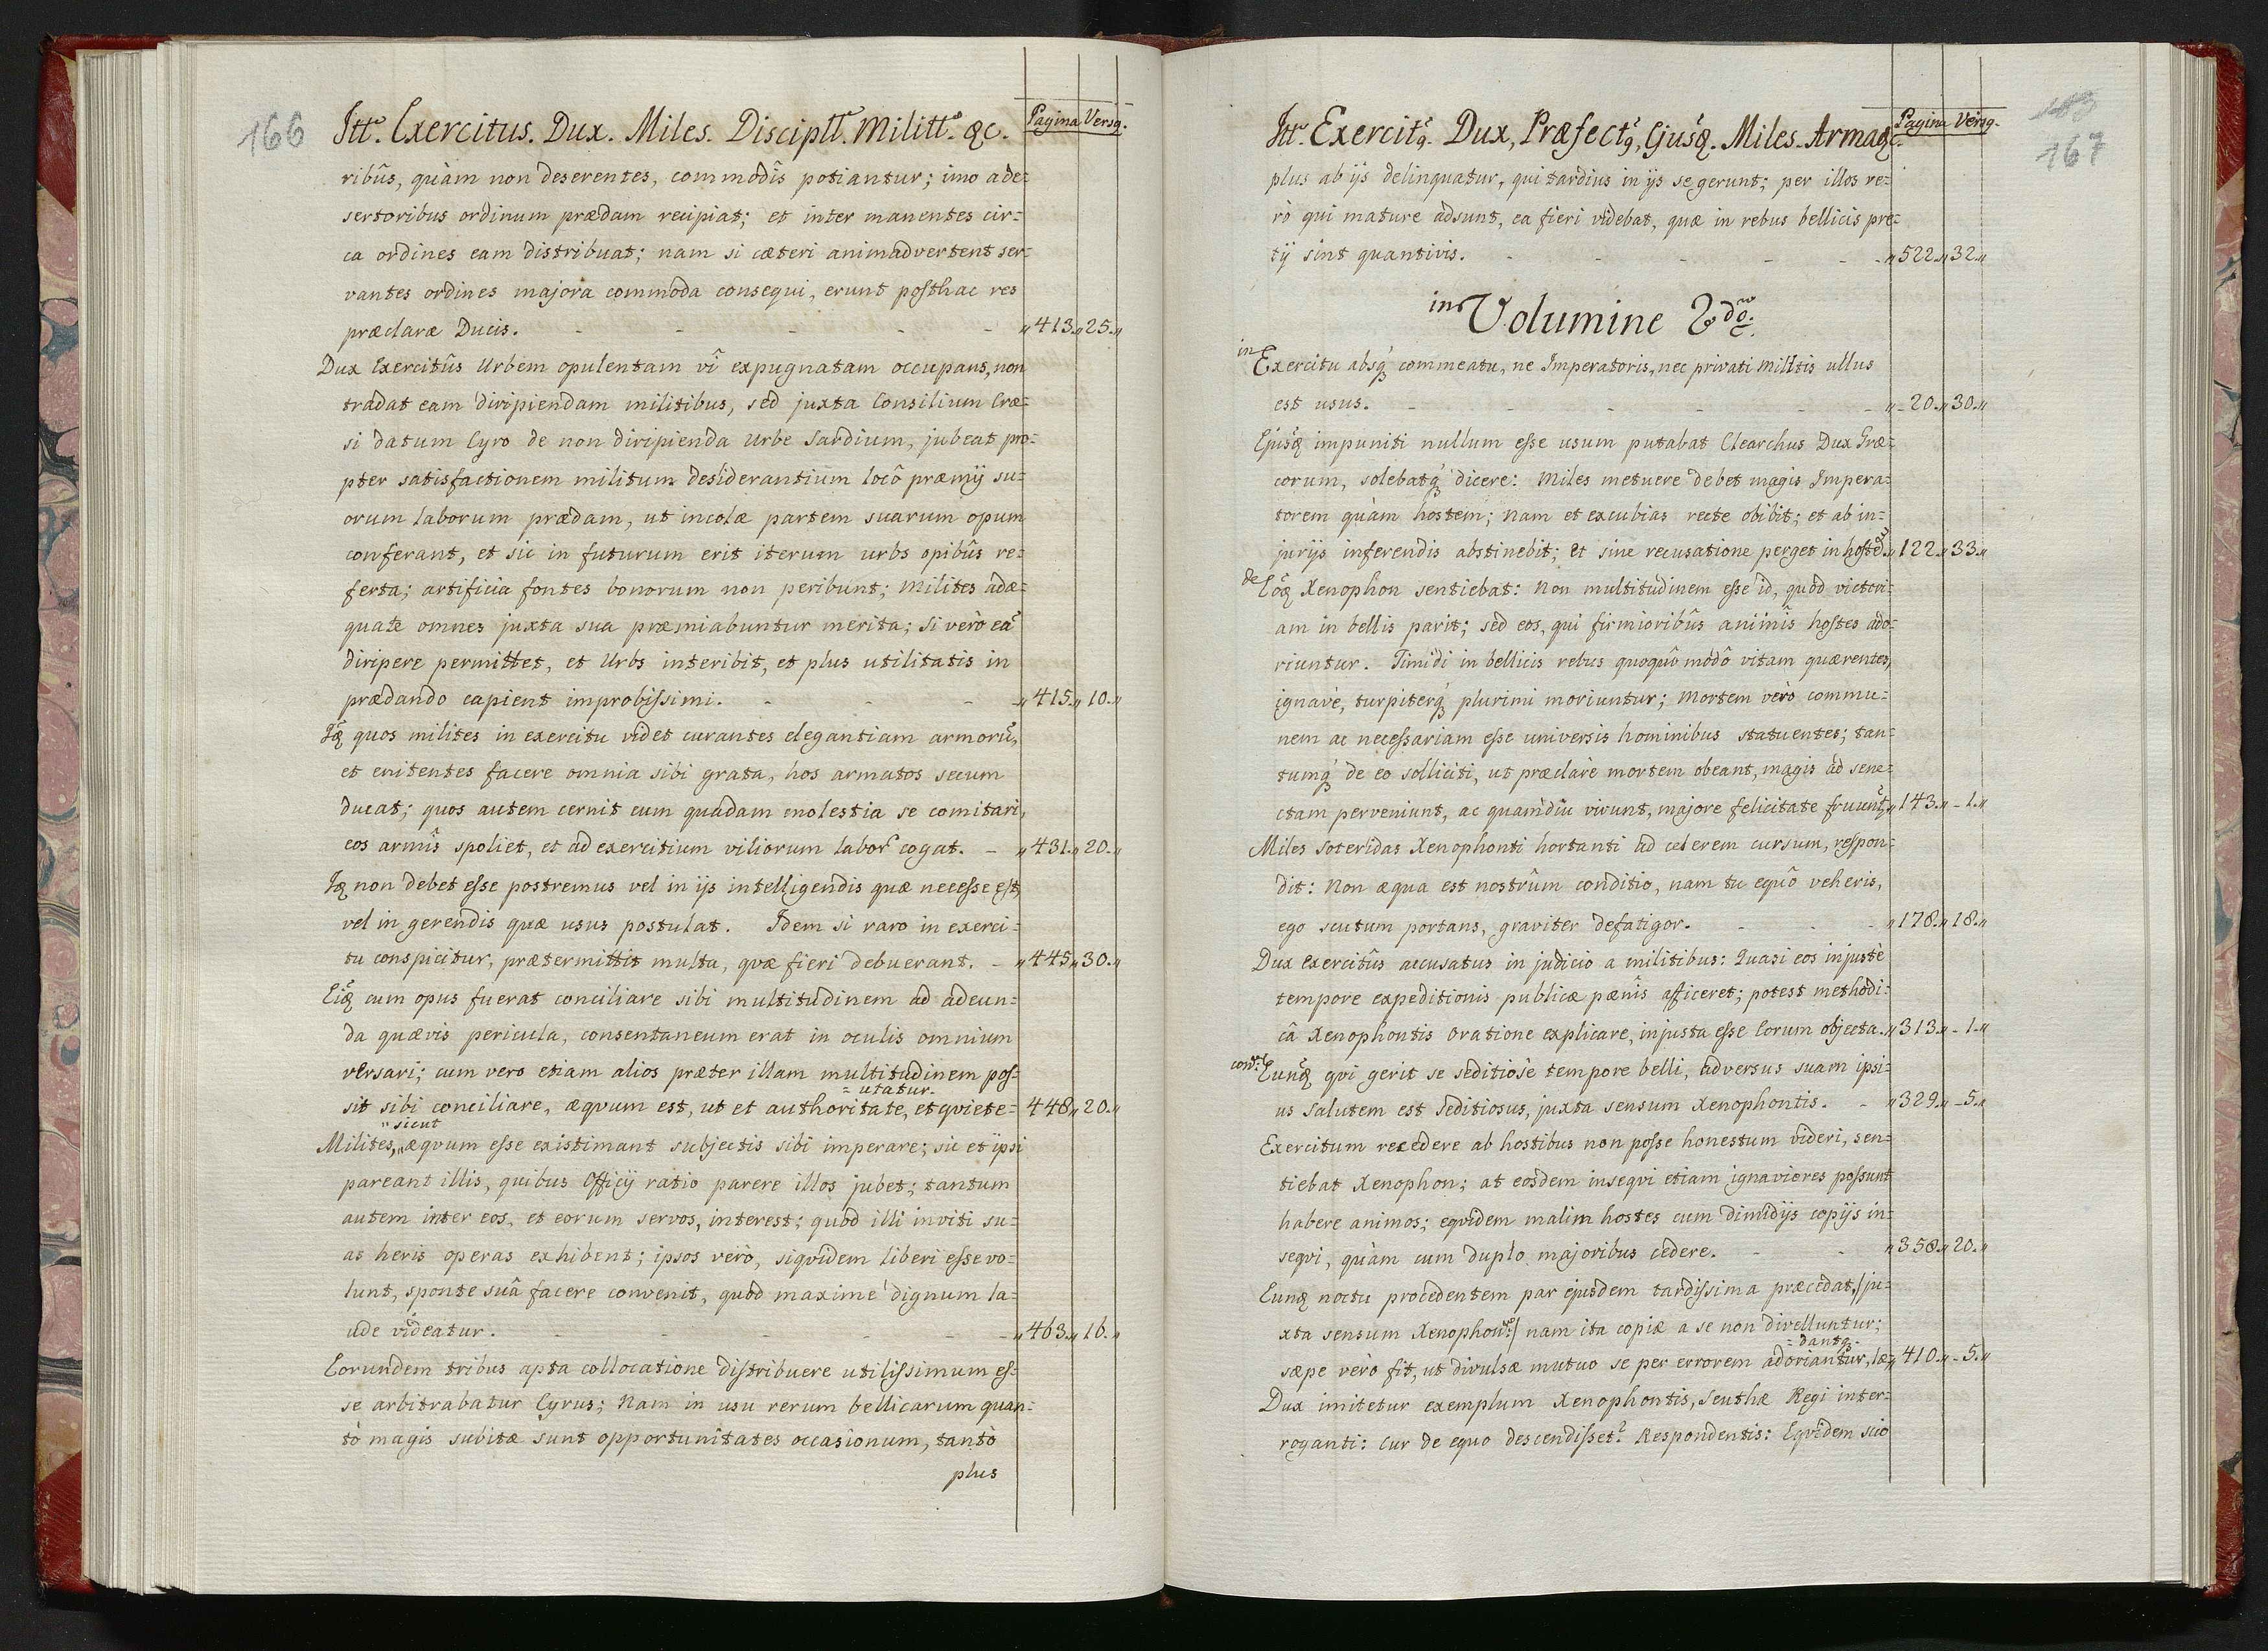 166
Itt. Exercitus. Dux. Miles. Discipll. Militt. &c. Pagina Versq.
ribûs, quàm non deserentes, commodîs potiantur; imo a de=
sertoribus ordinum prædam recipiat; et inter manentes cir=
ca ordines eam distribuat; nam si cæteri animadvertent ser=
vantes ordines majora commoda consequi, erunt posthac res
præclaræ Ducis. - - - - - „413.„25.„
Dux Exercitûs Urbem opulentam vî expugnatam occupans, non
tradat eam diripiendam militibus, sed juxta Consilium Cræ=
si datum Cyro de non diripienda Urbe Sardium, jubeat pro=
pter satisfactionem militum desiderantium locô præmij su=
orum laborum prædam, ut incolæ partem suarum opum
conferant, et sic in futurum erit iterum urbs opibûs re=
ferta; artificia fontes bonorum non peribunt; milites adæ=
quate omnes juxta sua præmiabuntur merita; si verò eã
diripere permittet, et Urbs interibit, et plus utilitatis in
prædando capient improbissimi. - - - „415.„10.„
Iq quos milites in exercitu videt curantes elegantiam armorũ,
et enitentes facere omnia sibi grata, hos armatos secum
ducat; quos autem cernit cum quadam molestia se comitari,
eos armîs spoliet, et ad exercitium viliorum labor cogat. - „431.„20.„
Iq non debet esse postremus vel in ijs intelligendis quæ necesse est,
vel in gerendis quæ usus postulat. Idem si raro in exerci=
tu conspicitur, prætermittit multa, qvæ fieri debuerant. - „445„30.„
Eiq cum opus fuerat conciliare sibi multitudinem ad adeun=
da quævis pericula, consentaneum erat in oculis omnium
versari; cum vero etiam alios præter illam multitudinem pos=
= utatur.
sit sibi conciliare, æqvum est, ut et authoritate, et qviete= „448„20.„
„sicut
Milites, „ æqvum esse existimant subjectis sibi imperare; sic et ipsi
pareant illis, quibus Officij ratio parere illos jubet; tantum
autem inter eos, et eorum servos, interest; quòd illi inviti su=
as heris operas exhibent; ipsos verò, siqvidem liberi esse vo=
lunt, sponte suâ facere convenit, quòd maximè dignum la=
ude videatur. - - - - - „463.„16.„
Eorundem tribus apta collocatione distribuere utilissimum es=
se arbitrabatur Cyrus; Nam in usu rerum bellicarum quan=
tò magis subitæ sunt opportunitates occasionum, tantò
plus
167
Itt. Exercitq. Dux, Præfectq, Ejusq. Miles. Armaq. Pagina Versq.
plus ab ijs delinquatur, qui tardius in ijs se gerunt; per illos re=
rò qui mature adsunt, ea fieri videbat, quæ in rebus bellicis pre=
tij sint quantivis. - - - - - „522.„32.„
in Volumine 2do.
in Exercitu absq commeatu, ne Imperatoris, nec privati militis ullus
est usus. - - - - - - „-20.„30.„
Ejusq impuniti nullum esse usum putabat Clearchus Dux Græ=
corum, solebatq dicere: Miles metuere debet magis Impera=
torem quàm hostem; Nam et excubias recte obibit; et ab in=
jurijs inferendis abstinebit; et sine recusatione perget in hostes. „122.„33.„
de Eoq Xenophon sentiebat: Non multitudinem esse id, quòd victori=
am in bellis parit; sed eos, qui firmioribûs animîs hostes ado=
riuntur. Timidi in bellicis rebus quoquô modô vitam quærentes,
ignavè, turpiterq plurimi moriuntur; Mortem verò commu=
nem ac necessariam esse universis hominibus statuentes; tan=
tumq de eo solliciti, ut præclarè mortem obeant, magis ad sene=
ctam perveniunt, ac quamdiu vivunt, majore felicitate fruunt „143.„-1.„
Miles Soteridas Xenophonti hortanti ad celerem cursum, respon=
dit: Non æqua est nostrûm conditio, nam tu equô veheris,
ego scutum portans, graviter defatigor. - - - „178.„18.„
Dux Exercitûs accusatus in judicio a militibus: Quasi eos injustè
tempore expeditionis publicæ pænîs afficeret; potest methodi=
câ Xenophontis Oratione explicare, injusta esse Eorum objecta. „313.„-1.„
Eunq qvi gerit se seditiosè tempore belli, adversus suam ipsi=
us salutem est seditiosus, juxta sensum Xenophontis. - „329.„-5.„
Exercitum recedere ab hostibus non posse honestum videri, sen=
tiebat Xenophon; at eosdem inseqvi etiam ignaviores possunt
habere animos; eqvidem malim hostes cum dimidijs copijs in=
seqvi, quàm cum duplo majoribus cedere. - - „358.„20.„
Eunq noctu procedentem par ejusdem tardissima præcedat, /ju=
xta sensum Xenophon:/ nam ita copiæ a se non divelluntur;
= dantq.
sæpe verò fit, ut divulsæ mutuo se per errorem adoriantur, læ= „410.„-5.„
Dux imitetur exemplum Xenophontis, Seuthæ Regi inter=
roganti: cur de equo descendisset? Respondentis: Eqvidem scio